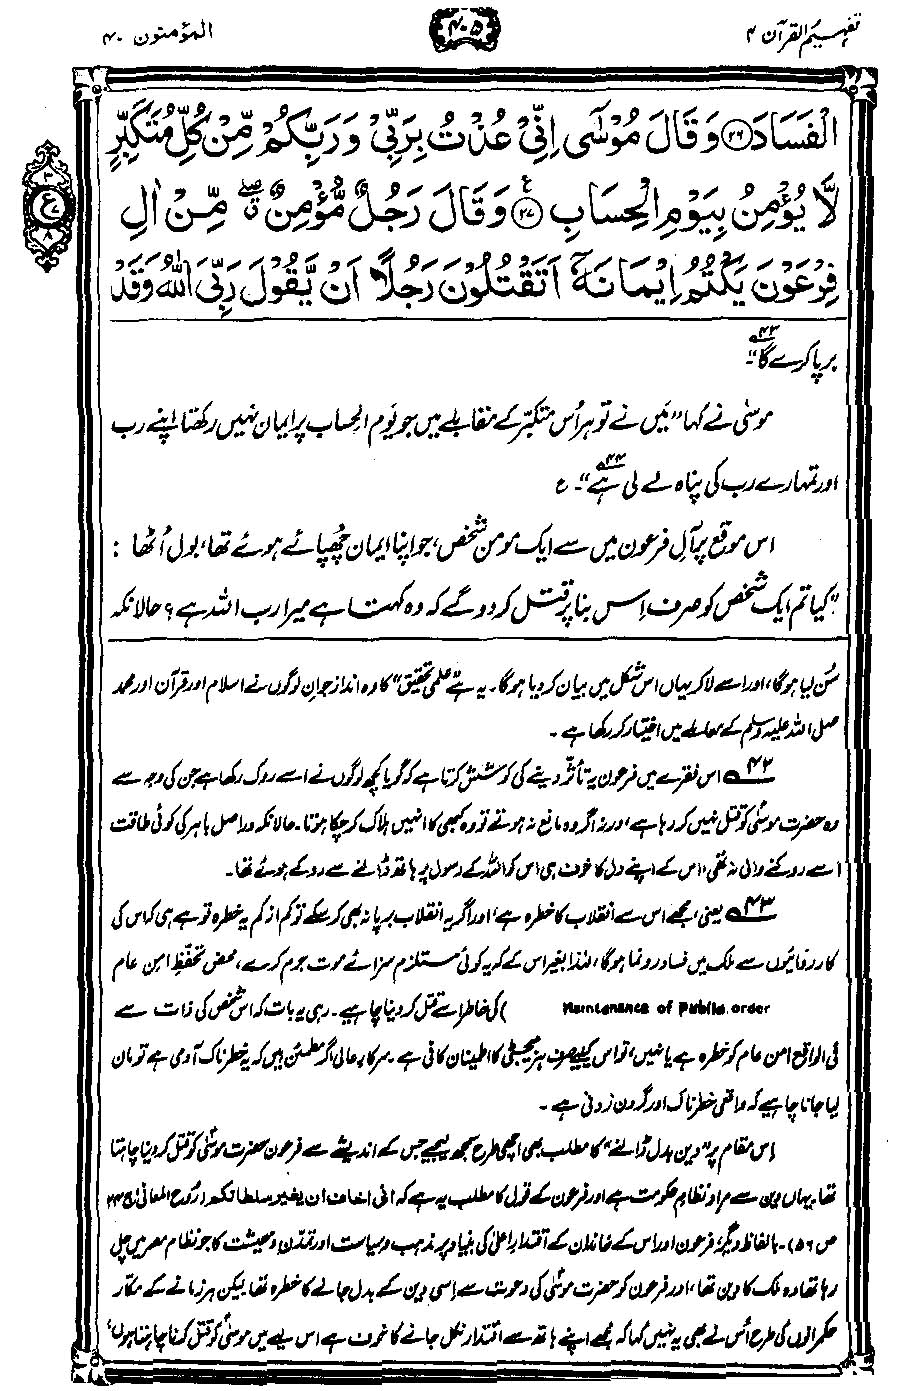 تفہیم القرآن ۴
۴۰۵
المؤمنون ۴۰
الْفَسَادَ ﴿۲۶﴾ وَقَالَ مُوْسٰٓى اِنِّیْ عُذْتُ بِرَبِّیْ وَرَبِّكُمْ مِّنْ كُلِّ مُتَكَبِّرٍ
لَّا یُؤْمِنُ بِیَوْمِ الْحِسَابِ ﴿۲۷﴾ وَقَالَ رَجُلٌ مُّؤْمِنٌ ۖ مِّنْ اٰلِ
فِرْعَوْنَ یَكْتُمُ اِیْمَانَهٗۤ اَتَقْتُلُوْنَ رَجُلًا اَنْ یَّقُوْلَ رَبِّیَ اللّٰهُ وَقَدْ
۳
ع
۸
برپا کرے گا"۔ ۴۳
موسٰی نے کہا "میں نے تو ہر اُس متکبّر کے مقابلے میں جو یَوم الحساب پر ایمان نہیں رکھتا اپنے رب
اور تمہارے رب کی پناہ لے لی ہے"۔ ۴۴ ع
اس موقع پر آلِ فرعون میں سے ایک مومن شخص، جو اپنا ایمان چھُپائے ہوئے تھا، بول اُٹھا :
"کیا تم ایک شخص کو صرف اِس بنا پر قتل کر دو گے کہ وہ کہتا ہے میرا رب اللہ ہے؟ حالانکہ
سُن لیا ہوگا، اور اسے لا کر یہاں اس شکل میں بیان کر دیا ہوگا۔ یہ ہے "علمی تحقیق" کا وہ انداز جو اِن لوگوں نے اسلام اور قرآن اور محمد
صلی اللہ علیہ وسلم کے معاملے میں اختیار کر رکھا ہے۔
۴۲ اس فقرے میں فرعون یہ تأثّر دینے کی کوشش کرتا ہے کہ گویا کچھ لوگوں نے اسے روک رکھا ہے جن کی وجہ سے
وہ حضرت موسٰیؑ کو قتل نہیں کر رہا ہے، ورنہ اگر وہ مانع نہ ہوتے تو وہ کبھی کا انہیں ہلاک کر چکا ہوتا۔ حالانکہ دراصل باہر کی کوئی طاقت
اسے روکنے والی نہ تھی، اس کے اپنے دل کا خوف ہی اس کو اللہ کے رسول پر ہاتھ ڈالنے سے روکے ہوئے تھا۔
۴۳ یعنی، مجھے اس سے انقلاب کا خطرہ ہے، اور اگر یہ انقلاب برپا نہ بھی کر سکے تو کم از کم یہ خطرہ تو ہے ہی کہ اس کی
کارروائیوں سے ملک میں فساد رونما ہوگا، لہٰذا بغیر اس کے کہ یہ کوئی مستلزم سزائے موت جرم کرے، محض تحفّظِ امن عام
Maintenance of Public order) کی خاطر اسے قتل کر دینا چاہیے۔ رہی یہ بات کہ اس شخص کی ذات سے
فی الواقع امن عام کو خطرہ ہے یا نہیں، تو اس کے لیے صرف ہز مجسٹی کا اطمینان کافی ہے۔ سرکارِ عالی اگر مطمئن ہیں کہ یہ خطرناک آدمی ہے تو مان
لیا جانا چاہیے کہ واقعی خطرناک اور گردن زدنی ہے۔
اس مقام پر "دین بدل ڈالنے" کا مطلب بھی اچھی طرح سمجھ لیجیے جس کے اندیشے سے فرعون حضرت موسٰیؑ کو قتل کر دینا چاہتا
تھا۔ یہاں دین سے مراد نظامِ حکومت ہے اور فرعون کے قول کا مطلب یہ ہے کہ انی اخاف ان یغیر سلطانکم (روح المعانی، ج ۲۴
ص ۵۶)۔ بالفاظ دیگر، فرعون اور اس کے خاندان کے اقتدارِ اعلیٰ کی بنیاد پر مذہب و سیاست اور تمدّن و معیشت کا جو نظام مصر میں چل
رہا تھا وہ ملک کا دین تھا، اور فرعون کو حضرت موسٰیؑ کی دعوت سے اِسی دین کے بدل جانے کا خطرہ تھا۔ لیکن ہر زمانے کے مکّار
حکمرانوں کی طرح اُس نے بھی یہ نہیں کہا کہ مجھے اپنے ہاتھ سے اقتدار نکل جانے کا خوف ہے اس لیے میں موسٰیؑ کو قتل کرنا چاہتا ہوں،